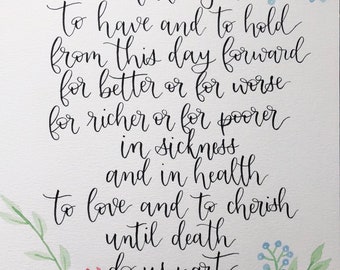 to have and to hold
from this day forward
for better or for worse
for richer or for poorer
in sickness
and in health
to love and to cherish
until death
do us part